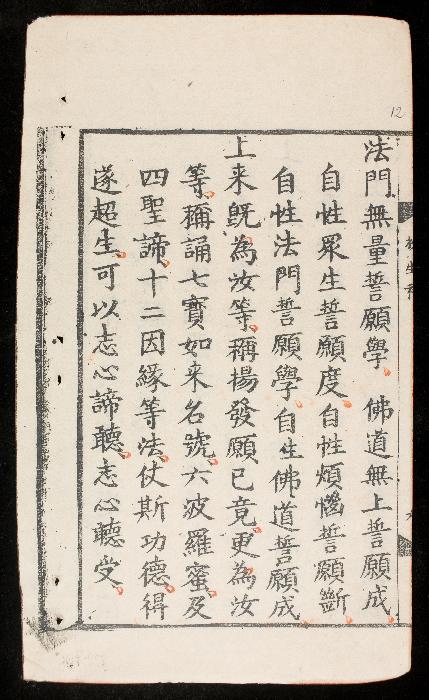 12
法門無量誓願學佛道無上誓願成
自性眾生誓願度自性煩惱誓願斷
自性法門誓願學自性佛道誓願成
上来既為汝等稱揚發願已竟更為汝
等稱誦七寶如来名號六波羅蜜及
四聖諦十二因緣等法仗斯功德得
遂超生可以志心諦聽志心聽受